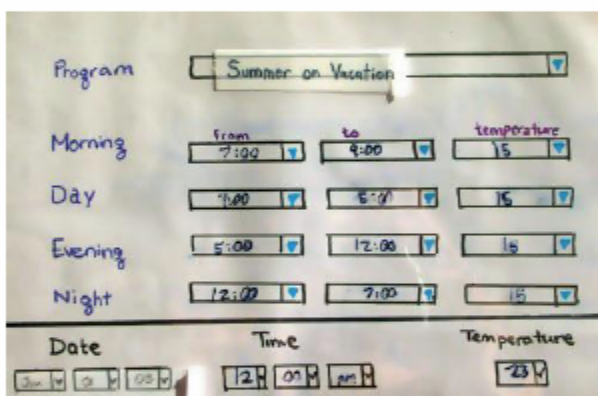 Program Summer on Vacation
from to temperature
Morning 7:00 9:00 15
Day 9:00 5:00 15
Evening 5:00 12:00 15
Night 12:00 7:00 15
Date Time Temperature
01 03 12 00 pm 23